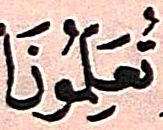 تُعَلِمُونَا